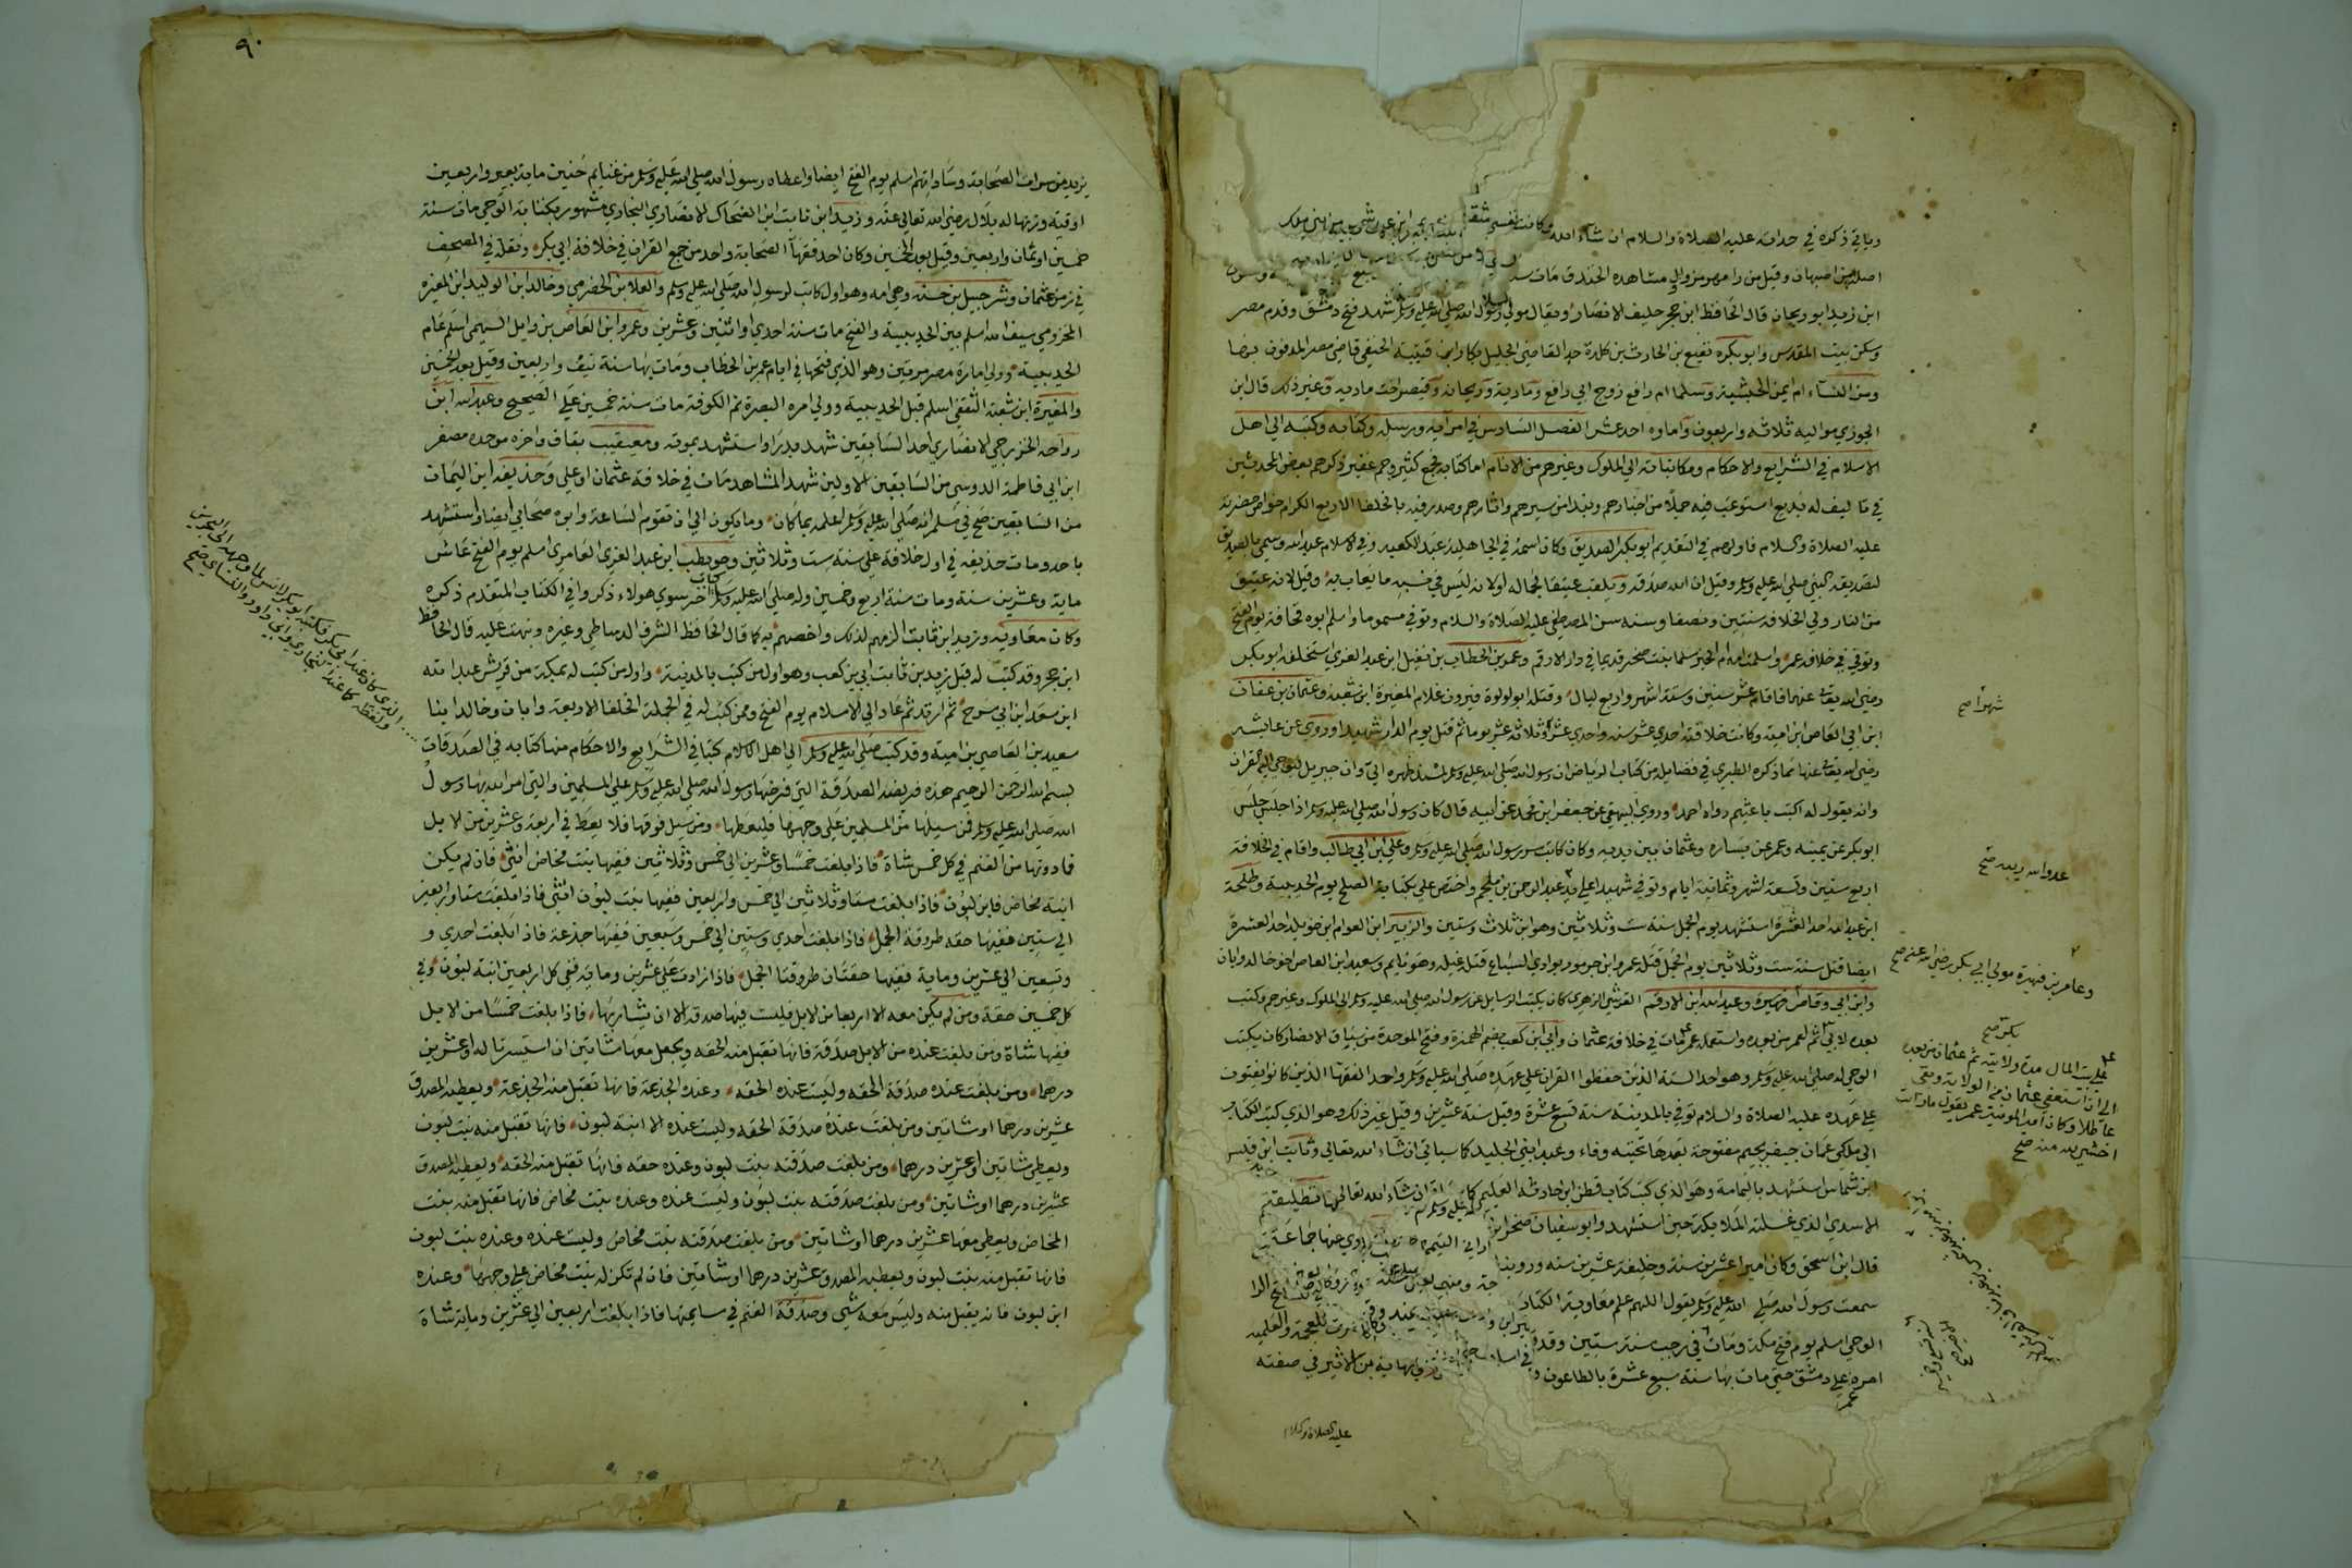 وياتي ذكره في حداته عليه الصلاة والسلام ان شآء الله وكانت نفسي
اصله من اصبهان وقيل من رامهرمز واول مشاهده الخندق مات
ابن زيد ابو ريحان قال الحافظ ابن حجر حليف الانصار ويقال مولي رسول الله صلى الله عليه وسلم شهد فتح دمشق وقدم مصر
وسكن بيت المقدس وابو بكره نفيع بن الحارث بن كلدة جد القاضي الجليل بكار ابن قتيبة الحنفي قاضي مصر المدفون بها
ومن النسآء ام ايمن الحبشية وسلما ام رافع زوج ابي رافع ومارية وريحانه وقيصر اخت ماريه وغير ذلك قال ابن
الجوزي مواليه ثلاثه واربعون وآماوه احد عشر الفصل السادس في امرآيه ورسله وكتابه وكتبه الي اهل
الاسلام في الشرايع والاحكام ومكاتباته الي الملوك وغيرهم من الانام اما كتابه فجمع كثير وجم غفير ذكرهم بعض المحدثين
في تاليف له بديع استوعب فيه جملا من اخبارهم ونبذا من سيرهم واثارهم وصدر فيه بالخلفا الاربع الكرام خواص حضرته
عليه الصلاة والسلام فاولهم في التقديم ابو بكر الصديق وكان اسمه في الجاهلية عبد الكعبه وفي الاسلام عبد الله وسمي بالصديق
لتصديقه النبي صلى الله عليه وسلم وقيل ان الله صدقه ويلقب عتيقا لجماله او لانه ليس في نسبه ما يعاب به وقيل لانه عتيق
من النار ولي الخلافه سنتين ونصفا وسنه سن المصطفي عليه الصلاة والسلام وتوفي مسموما واسلم ابوه قحافة يوم الفتح
وتوفي في خلافه عمر واسلمت امه ام الخير سلما بنت صخر قديما في دار الارقم وعمر بن الخطاب بن نفيل ابن عبد العزي استخلفه ابو بكر
رضي الله تعالى عنهما فاقام عشر سنين وستة اشهر واربع ليال وقتله ابو لولوة فيروز غلام المغيرة ابن شعبة وعثمان بن عفان
ابن ابي العاص ابن امية وكانت خلافته احدي عشر سنه واحدي عشر وثلاثه عشر يوما ثم قتل يوم الدار شهيدا وروي عن عايشه
رضي الله تعالى عنها مما ذكره الطبري في فضايله من كتاب الرياض ان رسول الله صلى الله عليه وسلم لمسند ظهره الي وان جبريل ليوحي اليه القران
وانه يقول له اكتب يا عثيم رواه احمد وروي البيهقي عن جعفر ابن محمد عن ابيه قال كان رسول الله صلى الله عليه وسلم اذا جلس جلس
ابو بكر عن يمينه وعمر عن يساره وعثمان بين يديه وكان كاتب سر رسول الله صلى الله عليه وسلم وعلي ابن ابي طالب واقام في الخلافة
اربع سنين وتسعة اشهر وثمانية ايام وتوفي شهيدا علي يد عبد الرحمن بن ملجم واختص علي بكتابة الصلح يوم الحديبية وطلحة
ابن عبيد الله احد العشرة استشهد يوم الجمل سنة ست وثلاثين وهو ابن ثلاث وستين والزبير ابن العوام ابن خويلد احد العشرة
ايضا قتل سنة ست وثلاثين يوم الجمل قتله عمرو ابن جرموز بوادي السباع قتله غيلة وهو نايم وسعيد ابن العاص اخو خالد وابان
وابن ابي وقاص فهيرة وعبد الله ابن الارقم القرشي الزهري كان يكتب الرسايل عن رسول الله صلى الله عليه وسلم الي الملوك وغيرهم وكتب
بعده لابي ثم لعمر من بعده واستعمله عمر مات في خلافة عثمان وابي ابن كعب بضم الهمزة وفتح الموحدة من سباق الانصار كان يكتب
الوحي له صلى الله عليه وسلم وهو احد الستة الذين حفظوا القران علي عهده صلى الله عليه وسلم واحد الفقهآ الذين كانوا يفتون
علي عهده عليه الصلاة والسلام توفي بالمدينة سنة تسع عشرة وقيل سنة عشرين وقيل غير ذلك وهو الذي كتب الكتاب
الي ملكي عمان جيفر بجيم مفتوحة بعدها تحتيه وفاء وعبد ابني الجليد كما سياتي ان شاء الله تعالي وثابت ابن قيس
ابن شماس استشهد باليمامة وهو الذي كتب كتاب قطن ابن حارثه العليمي كما ان شآء الله تعالى
الاسدي الذي غسلته الملايكة حين استشهد وابو سفيان صخر ابن
قال ابن اسحق وكان اميرا عشرين سنة وخليفة عشرين سنه وروينا
سمعت رسول الله صلى الله عليه وسلم يقول اللهم علم معاوية الكتاب
الوحي اسلم يوم فتح مكة ومات في رجب سنة ستين وقد
امره علي دمشق حتي مات بها سنة سبع عشرة بالطاعون
عليه الصلاة والسلام
شهرا صح
عدو الله ربعه صح
وعامر بن فهيرة مولي ابي بكر رضي الله عنه صح
بكر صح
علي بيت المال مدة ولايته ثم عثمان من بعده
الي ان استعفي عثمان من الولاية وبقي
عاطلا وكان امير المومنين عمر يقول ما رايت
اخشي لله منه صح
٩٠
يزيد من سراة الصحابة وساداتهم اسلم يوم الفتح ايضا واعطاه رسول الله صلى الله عليه وسلم من غنايم حنين ماية بعير واربعين
اوقيه وزنها له بلال رضي الله تعالي عنه وزيد ابن ثابت ابن الضحاك الانصاري النجاري مشهور بكتابة الوحي مات سنة
خمسين او ثمان واربعين وقيل بعد الخمسين وكان احد فقهآ الصحابة واحد من جمع القران في خلافة ابي بكر ونقله في المصحف
في زمن عثمان وشرجبيل بن حسنه وهي امه وهو اول كاتب لرسول الله صلى الله عليه وسلم والعلا بن الحضرمي وخالد ابن الوليد ابن المغيره
المخزومي سيف الله اسلم بين الحديبية والفتح مات سنة احدي او اثنين وعشرين وعمرو ابن العاص بن وايل السهمي اسلم عام
الحديبية وولي امارة مصر مرتين وهو الذي فتحها في ايام عمر بن الخطاب ومات بها سنة نيف واربعين وقيل بعد الخمسين
والمغيرة ابن شعبة الثقفي اسلم قبل الحديبية وولي امره البصرة ثم الكوفة مات سنة خمسين علي الصحيح وعبد الله ابن
رواحه الخزرجي الانصاري احد السابقين شهد بدرا واستشهد بموته ومعيقيب بقاف واخره موحده مصغر
ابن ابي فاطمة الدوسي من السابقين الاولين شهد المشاهد مات في خلافة عثمان او علي وحذيفة ابن اليمان
من السابقين صح في مسلم انه صلى الله عليه وسلم اعلمه بما كان وما يكون الي ان تقوم الساعة وابوه صحابي ايضا واستشهد
باحد ومات حذيفه في اول خلافة علي سنة ست وثلاثين وحويطب ابن عبد العزي العامري اسلم يوم الفتح عاش
ماية وعشرين سنة ومات سنة اربع وخمسين وله صلى الله عليه وسلم كتاب اخر سوي هولاء ذكروا في الكتاب المتقدم ذكره
وكان معاويه وزيد ابن ثابت الزمهم لذلك واخصهم به كما قال الحافظ الشرف الدمياطي وغيره ونبهت عليه قال الحافظ
ابن حجر وقد كتب له قبل زيد بن ثابت ابي بن كعب وهو اول من كتب بالمدينة واول من كتب له بمكة من قريش عبد الله
ابن سعد ابن ابي سرح ثم ارتد ثم عاد الي الاسلام يوم الفتح وممن كتب له في الجملة الخلفا الاربعة وابان وخالد ابنا
سعيد بن العاصي بن امية وقد كتب صلى الله عليه وسلم الي اهل الاسلام كتبا في الشرايع والاحكام منها كتابه في الصدقات
بسم الله الرحمن الرحيم هذه فريضة الصدقة التي فرضها رسول الله صلى الله عليه وسلم علي المسلمين والتي امر الله بها رسول
الله صلى الله عليه وسلم فمن سيلها من المسلمين علي وجهها فليعطها ومن سيل فوقها فلا يعط في اربعة وعشرين من الابل
فما دونها من الغنم في كل خمس شاة فاذا بلغت خمسا وعشرين الي خمس وثلاثين ففيها بنت مخاض انثي فان لم يكن
ابنة مخاض فابن لبون فاذا بلغت ستا وثلاثين الي خمس واربعين ففيها بنت لبون انثي فاذا بلغت ستا واربعين
الي ستين ففيها حقه طروقة الجمل فاذا بلغت احدي وستين الي خمس وسبعين ففيها جذعة فاذا بلغت احدي و
وتسعين الي عشرين وماية ففيها حقتان طروقتا الجمل فاذا زادت علي عشرين وماية ففي كل اربعين ابنة لبون وفي
كل خمسين حقة ومن لم يكن معه الا اربعا من الابل فليست فيها صدقه الا ان يشا ربها فاذا بلغت خمسا من الابل
ففيها شاة ومن بلغت عنده من الابل صدقة فانها تقبل منه الحقه ويجعل معها شاتين ان استيسرتا له او عشرين
درهما ومن بلغت عنده صدقة الحقه وليست عنده الحقه وعنده الجذعة فانها تقبل منه الجذعة ويعطيه المصدق
عشرين درهما او شاتين ومن بلغت عنده صدقة الحقه وليست عنده الا ابنة لبون فانها تقبل منه بنت لبون
ويعطي شاتين او عشرين درهما ومن بلغت صدقته بنت لبون وعنده حقه فانها تقبل منه الحقه ويعطيه المصدق
عشرين درهما او شاتين ومن بلغت صدقته بنت لبون وليست عنده وعنده بنت مخاض فانها تقبل منه بنت
المخاض ويعطي معها عشرين درهما او شاتين ومن بلغت صدقته بنت مخاض وليست عنده وعنده بنت لبون
فانها تقبل منه بنت لبون ويعطيه المصدق عشرين درهما او شاتين فان لم تكن له بنت مخاض علي وجهها وعنده
ابن لبون فانه يقبل منه وليس معه شي وصدقة الغنم في سايمتها فاذا بلغت اربعين الي عشرين وماية شاة